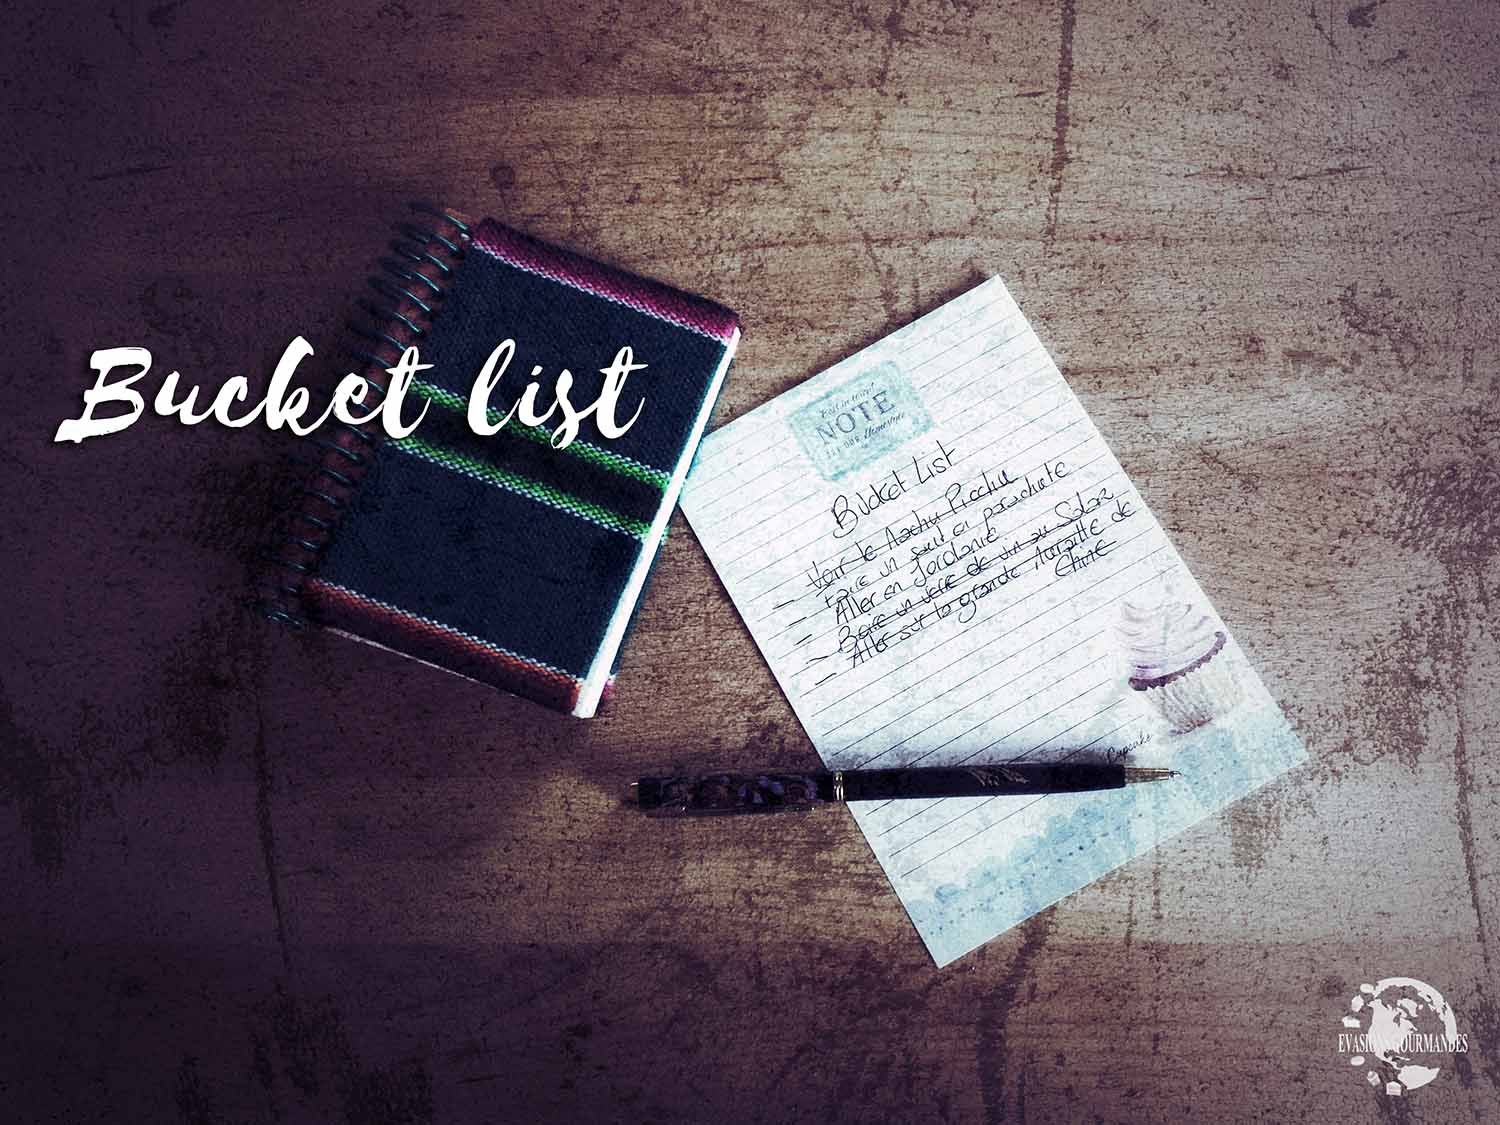 Bucket list
NOTE
Bucket List
- Voir le Machu Picchu
- Faire un saut en parachute
- Aller en Jordanie
- Boire un verre de vin au Salar
- Aller sur la grande Muraille de
Chine
Cupcake
EVASIONS GOURMANDES